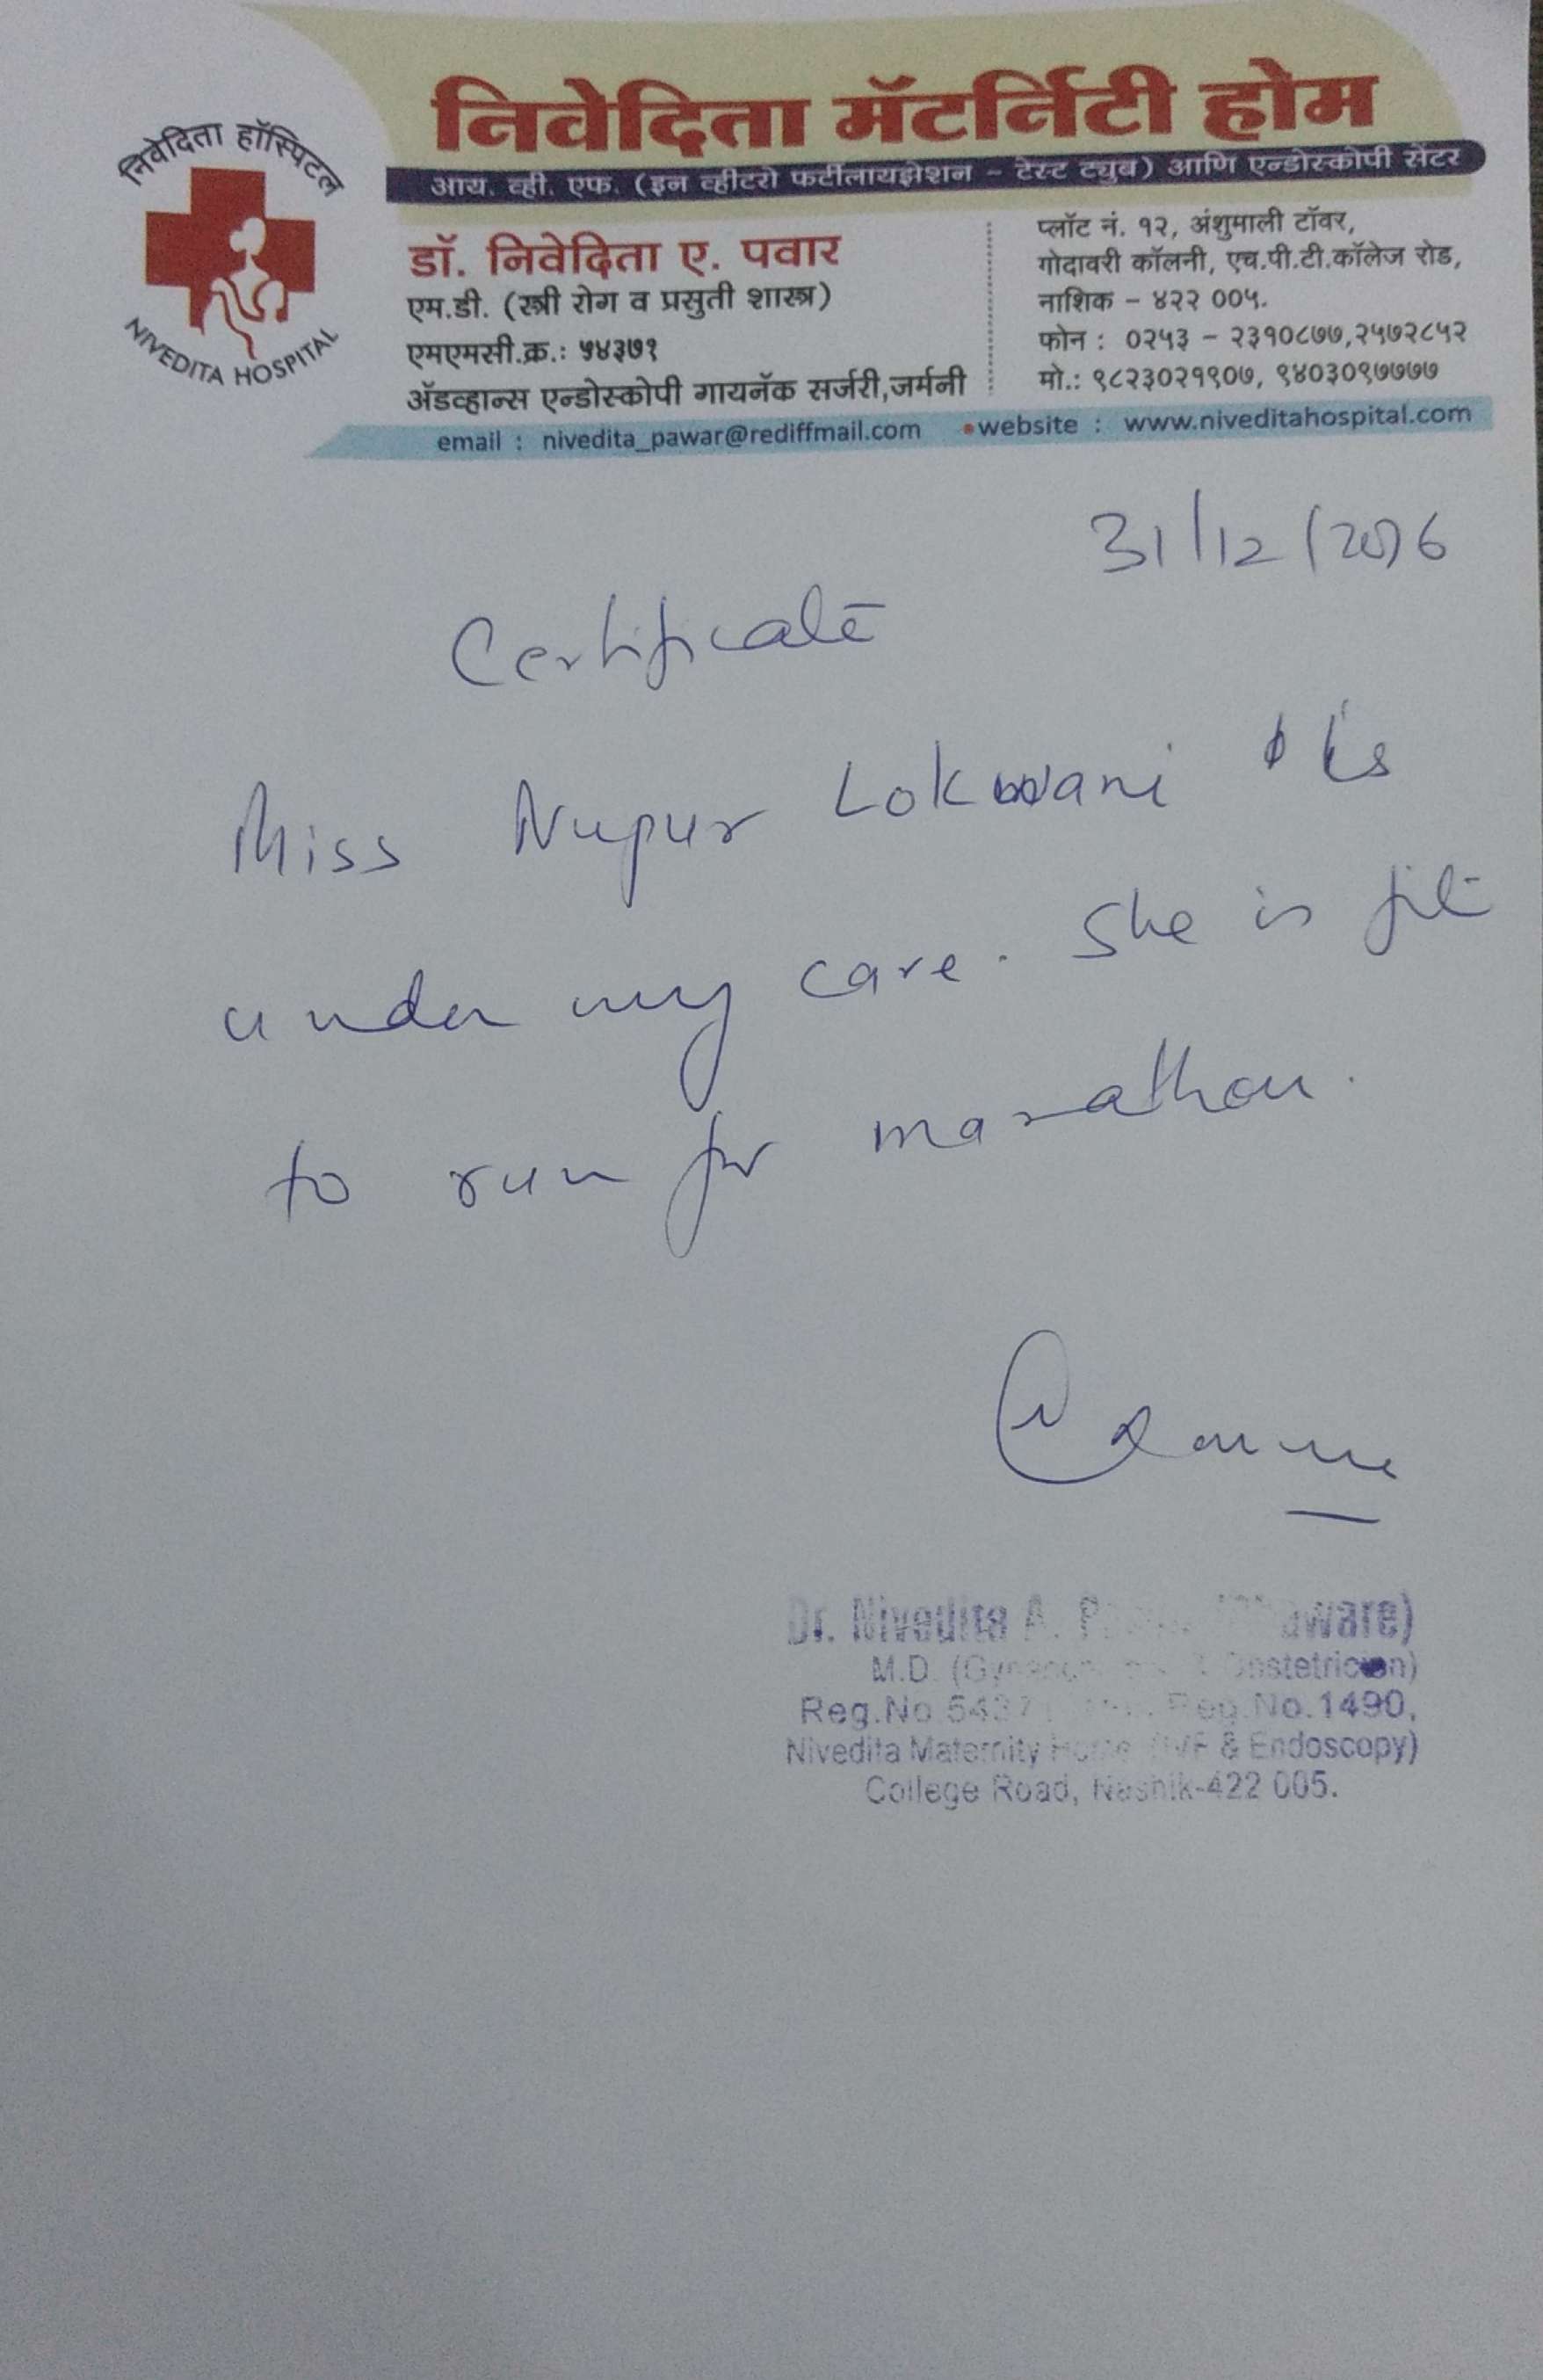 निवेदिता मॅटर्निटी होम
आय. व्ही. एफ. (इन व्हीटरो फर्टीलायझेशन - टेस्ट ट्युब) आणि एन्डोस्कोपी सेंटर
निवेदिता हॉस्पिटल
NIVEDITA HOSPITAL
डॉ. निवेदिता ए. पवार
एम.डी. (स्त्री रोग व प्रसुती शास्त्र)
एमएमसी.क्र.: ५४३७१
ॲडव्हान्स एन्डोस्कोपी गायनॅक सर्जरी,जर्मनी
प्लॉट नं. १२, अंशुमाली टॉवर,
गोदावरी कॉलनी, एच.पी.टी.कॉलेज रोड,
नाशिक - ४२२ ००५.
फोन : ०२५३ - २३१०८७७,२५७२८५२
मो.: ९८२३०२१९०७, ९४०३०९७७७७
email : nivedita_pawar@rediffmail.com •website : www.niveditahospital.com
31/12/2016
Certificate
Miss Nupur Lokwani is
under my care. She is fit
to run for marathon.
Dr. Nivedita A.
M.D.
Reg.No Reg.No.1490,
Nivedita Maternity Home (IVF & Endoscopy)
College Road, Nashik-422 005.